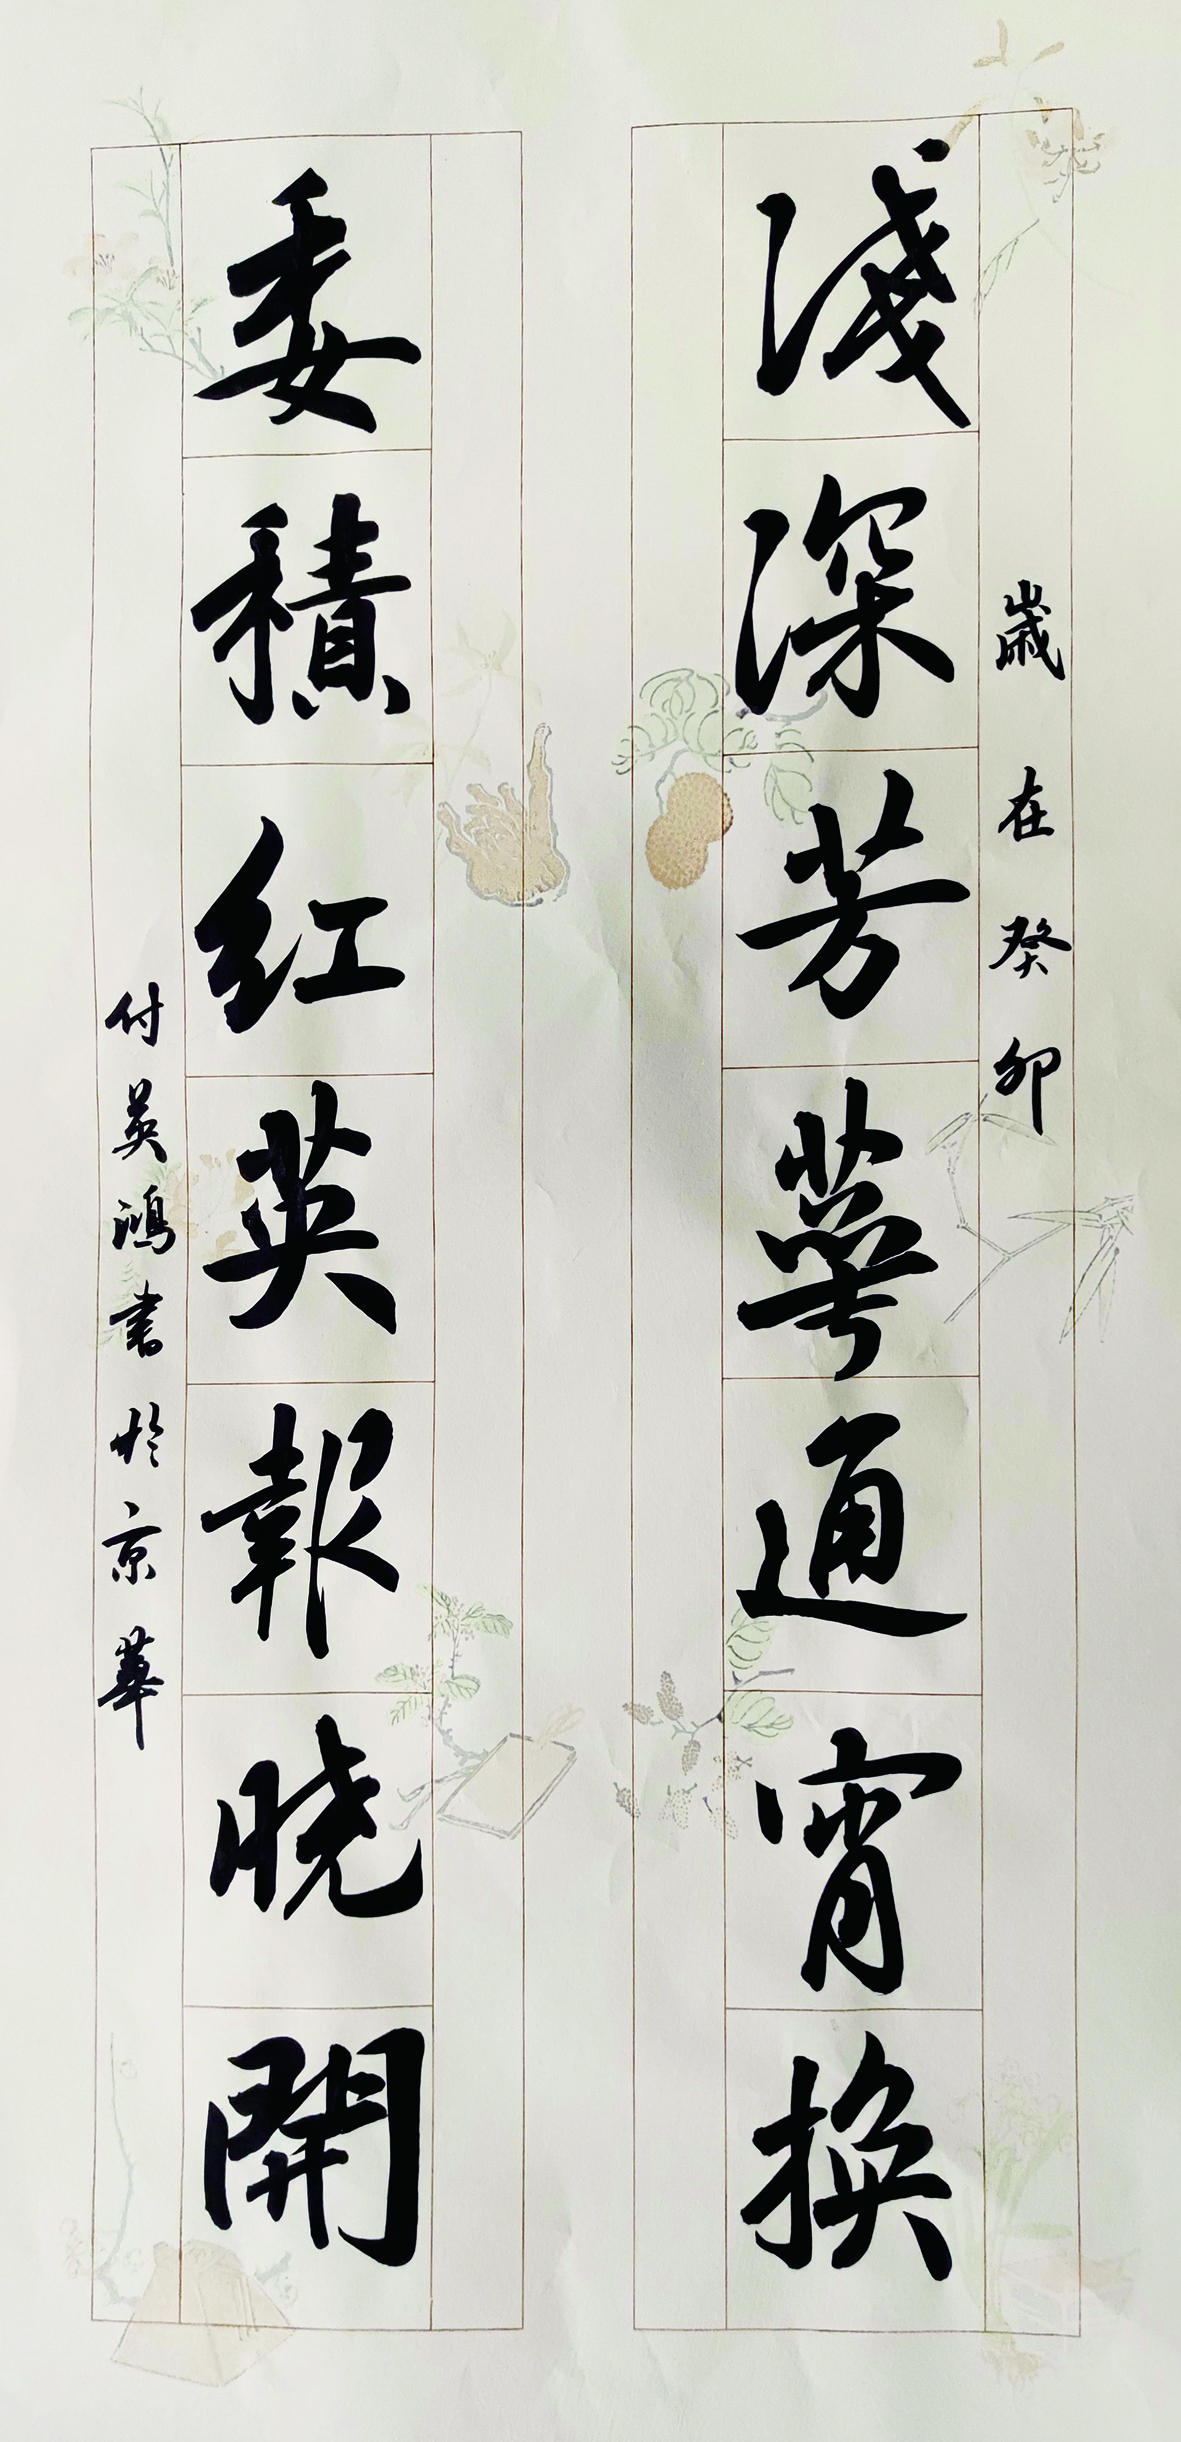 歲在癸卯
淺深芳萼通宵換
委積紅英報曉開
付英鴻書於京華